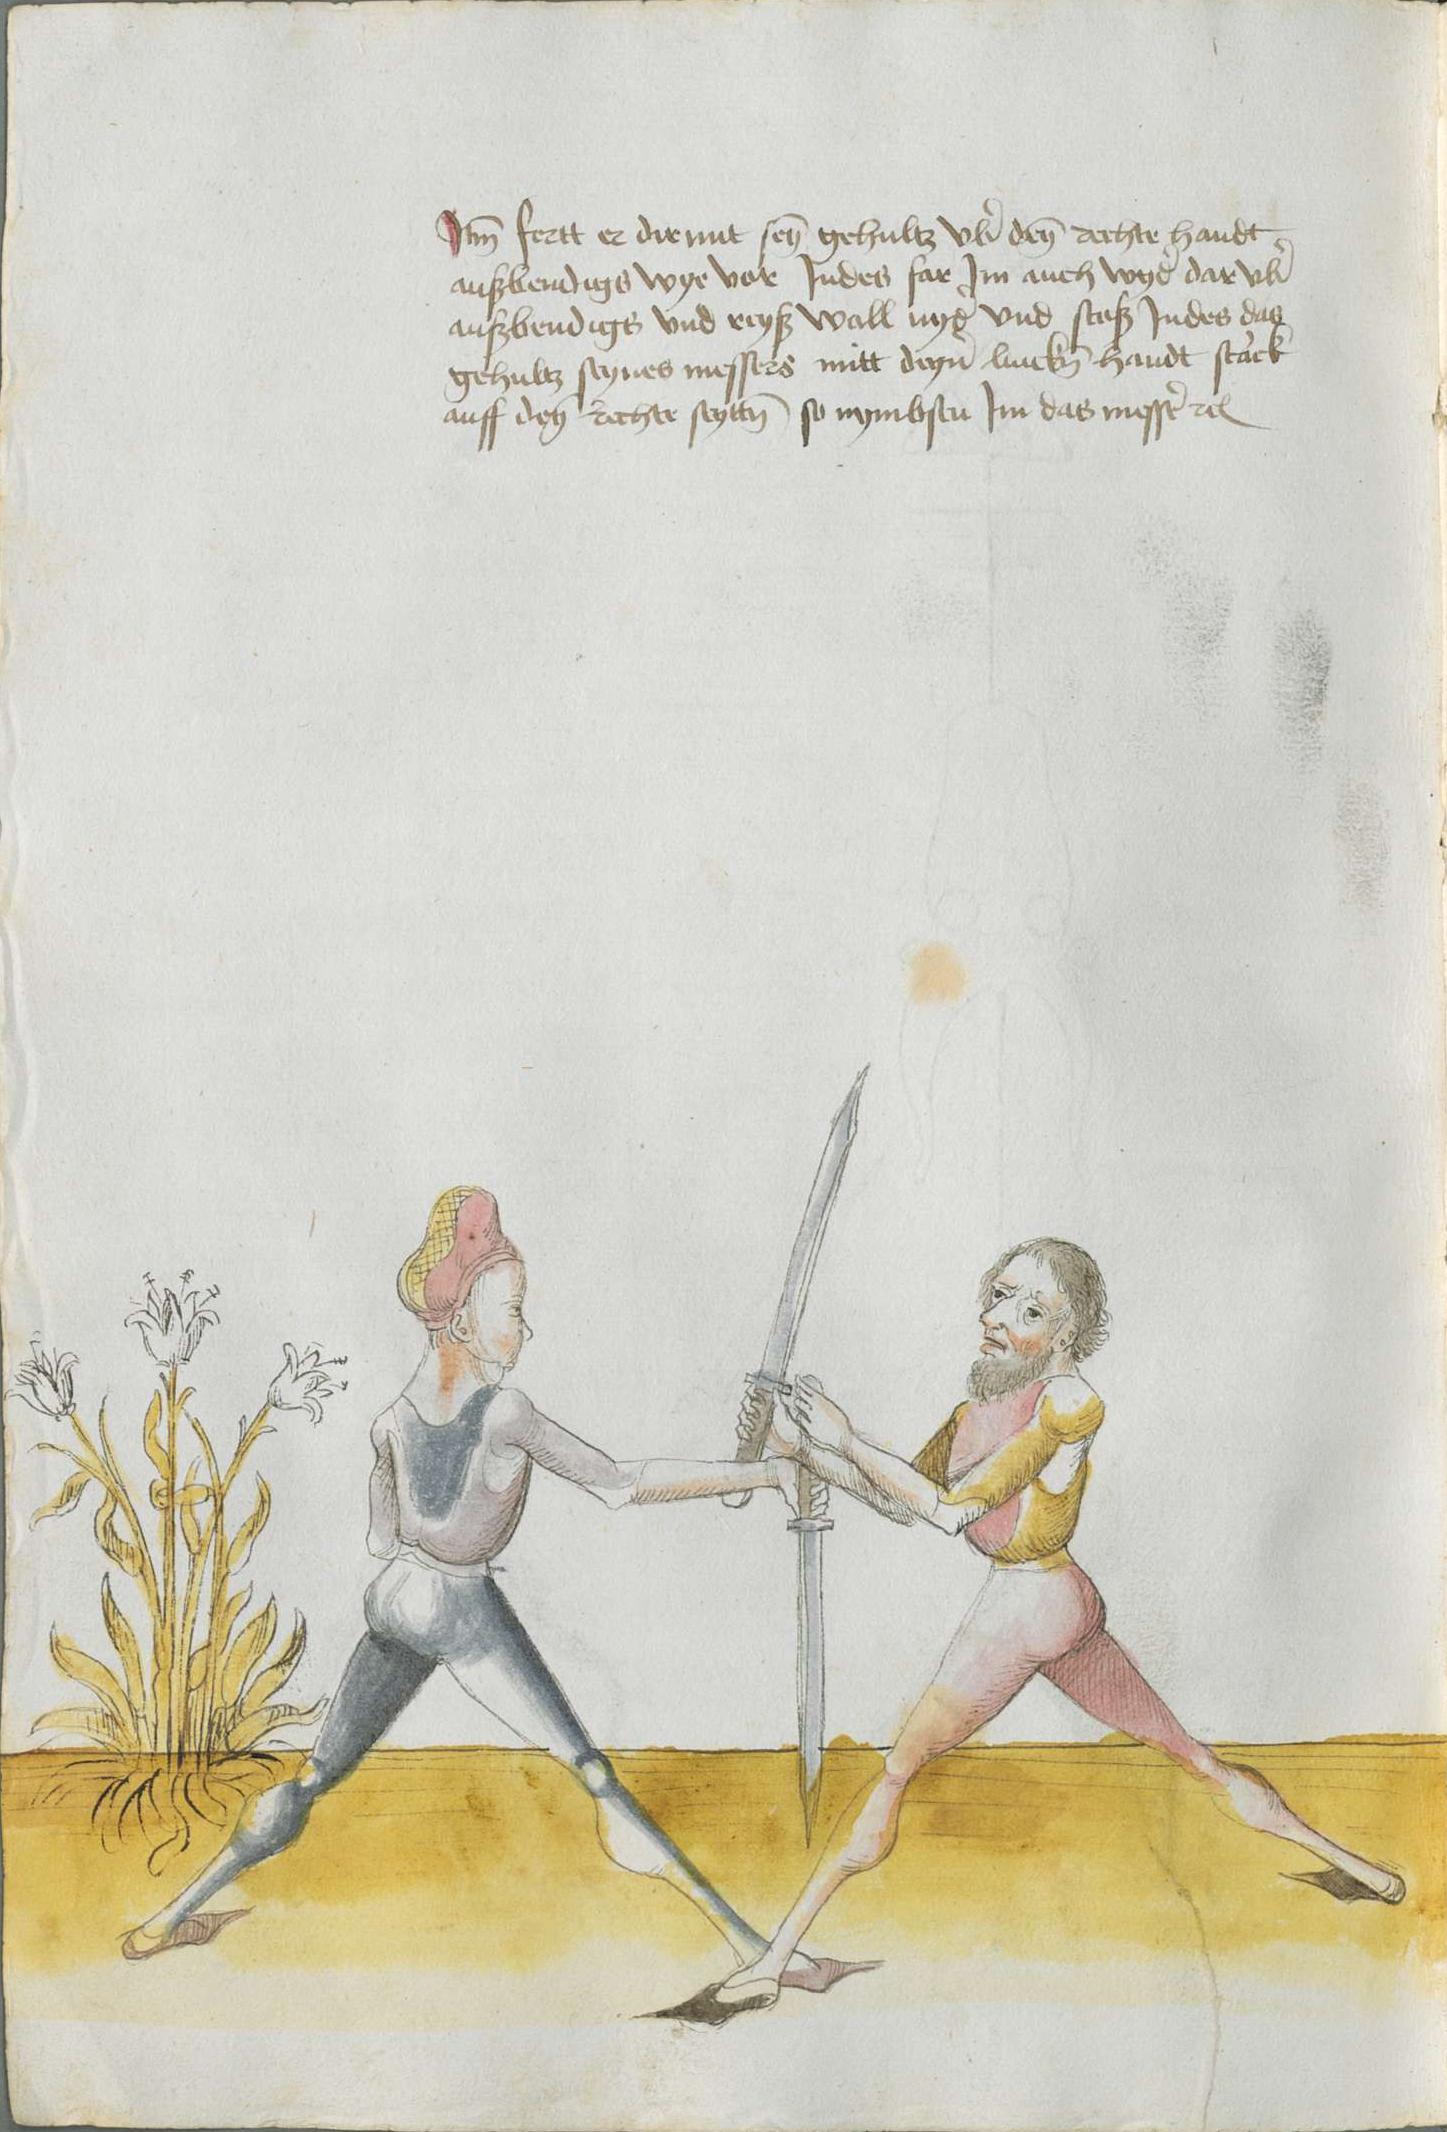 Itm̄ fertt er dir mit seȳ gehultz vb̉ deȳ rechte handt
außbendigs wye vor Indes far Im auch wyd̉ dar vb̉
außbendigs vnd reyß woll nyd̉ vnd stoß Indes das
gehultz seynes messers mitt deyn̉ linckn̄ handt starck
auff deȳ rechte seyttn̄ so nymbstu Im das mess̉